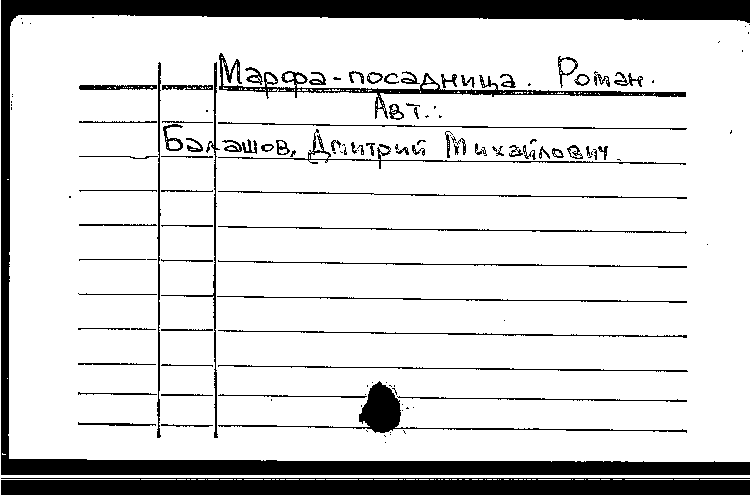 Марфа-посадница. Роман.
Авт.:
Балашов, Дмитрий Михайлович.